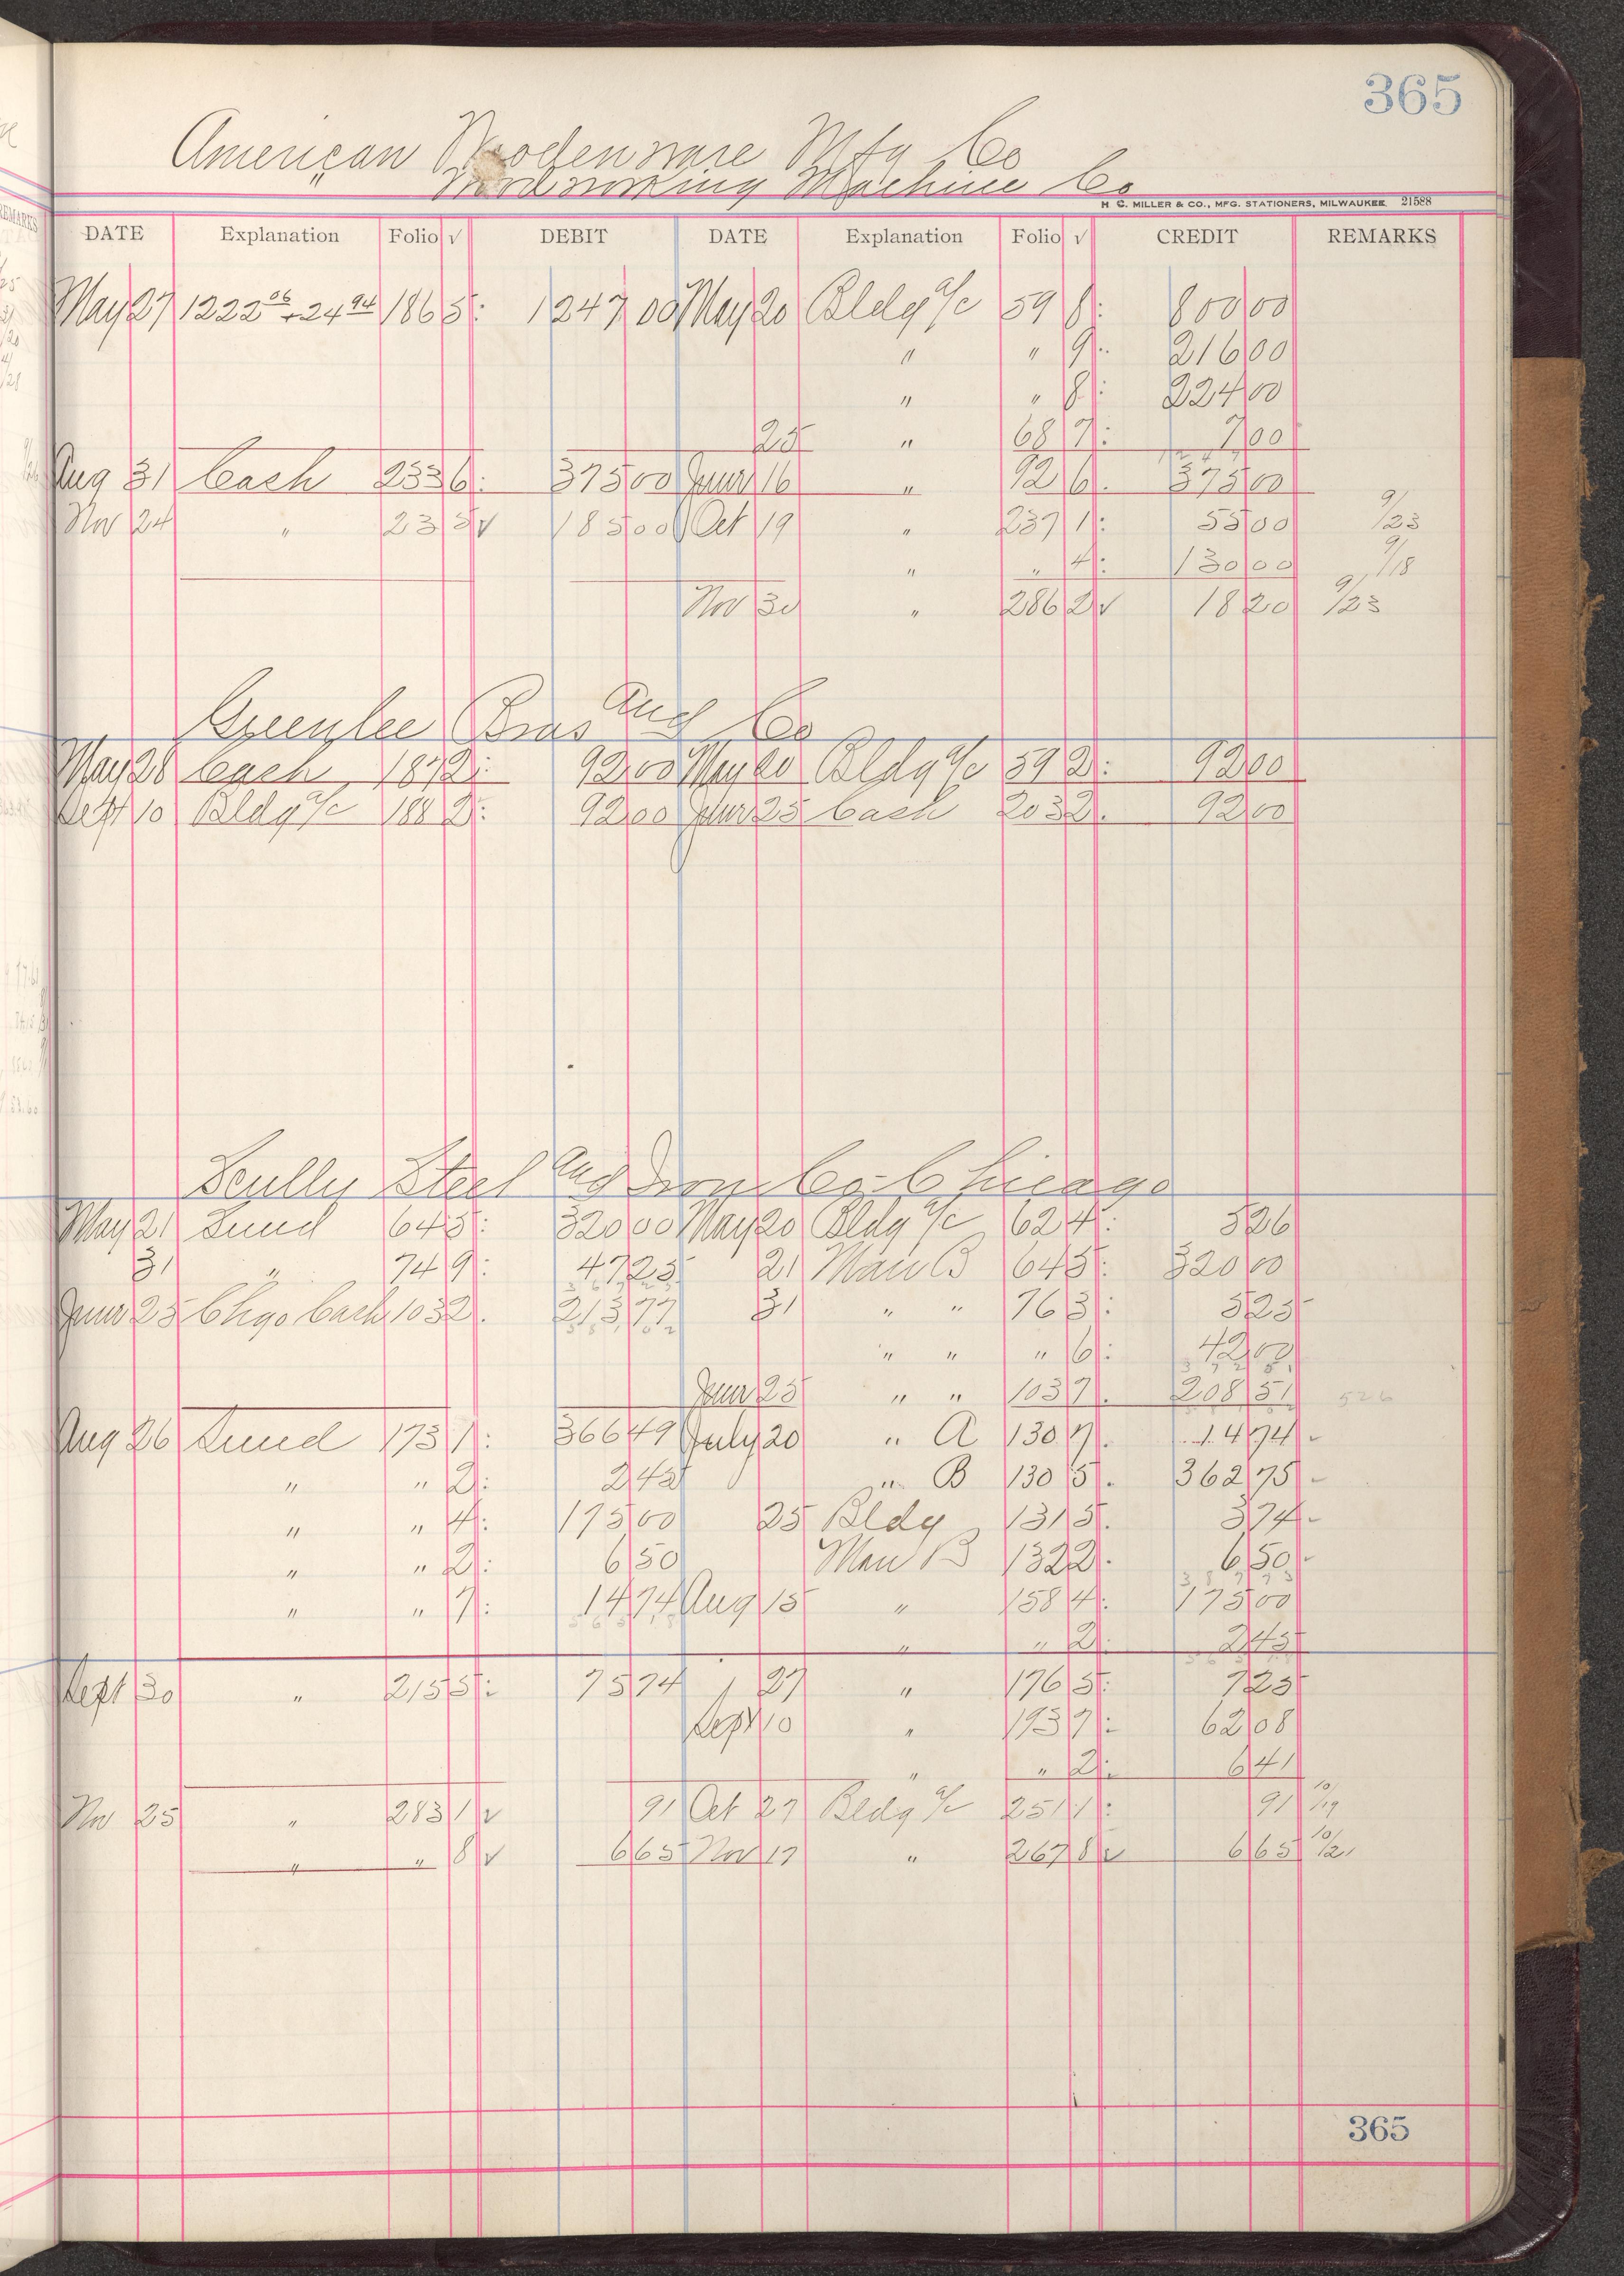 365
American Woodenware Mfg Co
" Woodworking Machine Co
H. C. MILLER & CO., MFG. STATIONERS, MILWAUKEE 21588
DATE Explanation Folio √ DEBIT DATE Explanation Folio √ CREDIT REMARKS
May 27 1222 06 + 24 94 186 5 : 1247 00 May 20 Bldg a/c 59 8 : 800 00
" " 9 : 216 00
" " 8 : 224 00
25 " 68 7 : 7 00
Aug 31 Cash 233 6 : 375 00 June 16 " 92 6 : 375 00
Nov 24 " 23 3 √ 185 00 Oct 19 " 237 1 : 55 00 9/23
" " 4 : 130 00 9/18
Nov 30 " 286 2 √ 18 20 9/23
Greenlee Bros and Co
May 28 Cash 187 2 : 92 00 May 20 Bldg a/c 59 2 : 92 00
Sept 10 Bldg a/c 188 2 : 92 00 June 25 Cash 203 2 : 92 00
Scully Steel and Iron Co - Chicago
May 21 Sund 64 5 : 320 00 May 20 Bldg a/c 62 4 : 5 26
31 " 74 9 : 47 25 21 Man B 64 5 : 320 00
June 25 Chgo Cash 103 2 : 213 77 31 " " 76 3 : 5 25
" " " 6 : 42 00
June 25 " " 103 7 : 208 51 526
Aug 26 Sund 173 1 : 366 49 July 20 " A 130 7 : 14 74 -
" " 2 : 2 45 " B 130 5 : 362 75 -
" " 4 : 175 00 25 Bldg 131 5 : 3 74 -
" " 2 : 6 50 Man B 132 2 : 6 50 -
" " 7 : 14 74 Aug 15 " 158 4 : 175 00
" " 2 : 2 45
Sept 30 " 215 5 : 75 74 27 " 176 5 : 7 25
Sept 10 " 193 7 : 62 08
" " 2 : 6 41
Nov 25 " 283 1 √ 91 Oct 27 Bldg a/c 251 1 : 91 10/19
" " 8 √ 6 65 Nov 17 " 267 8 √ 6 65 10/21
365